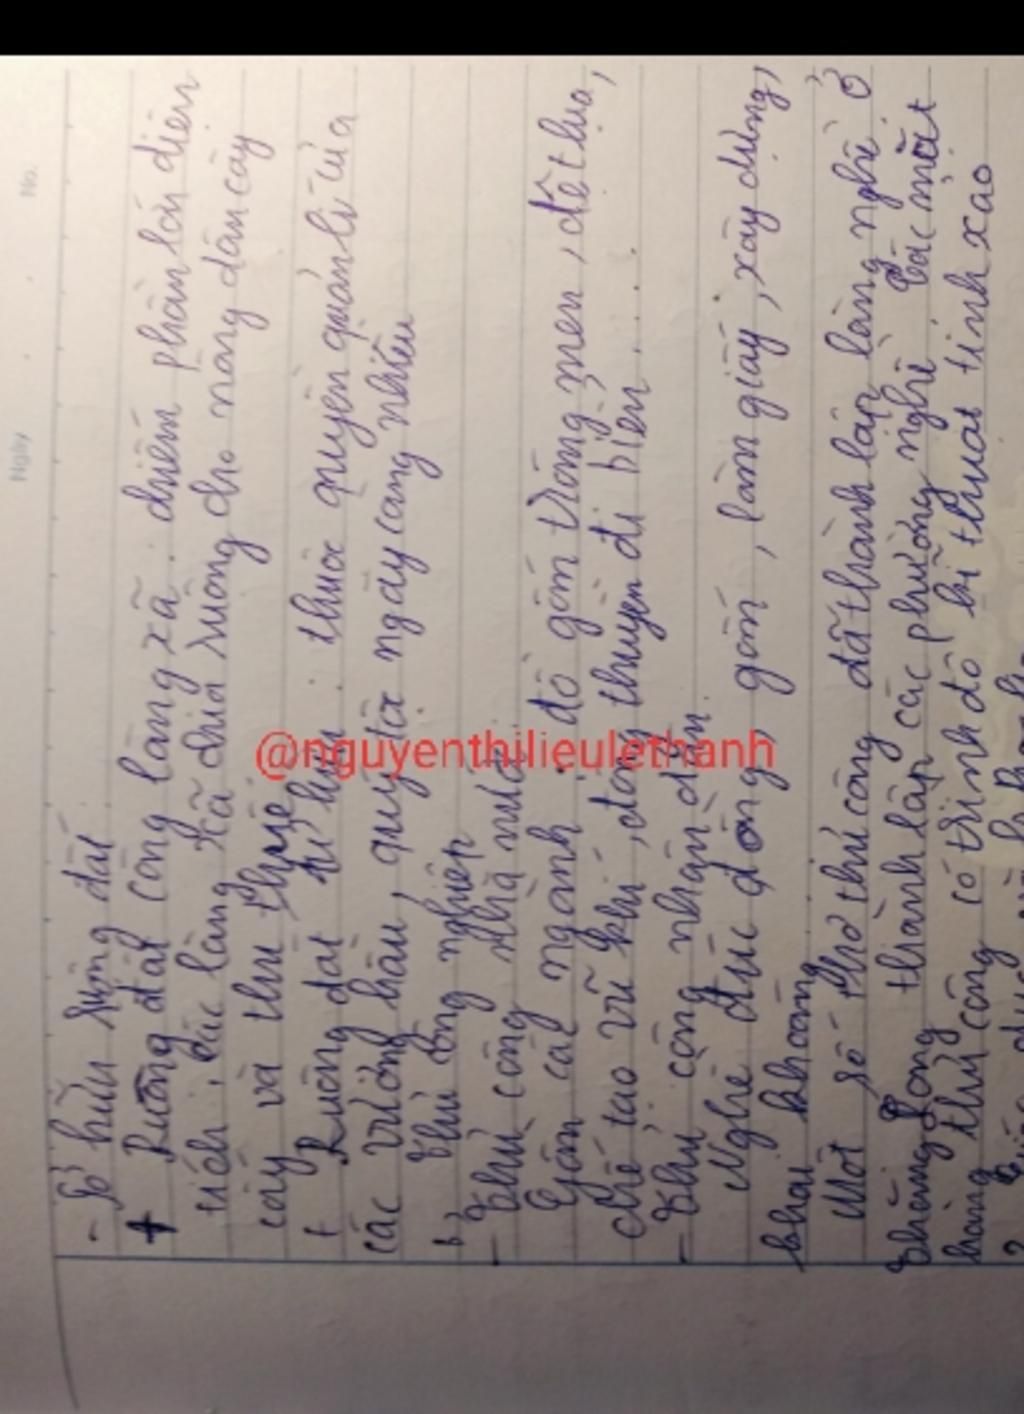 Ngày
No.
- Sở hữu ruộng đất
+ Ruộng đất công làng xã : chiếm phần lớn diện
tích, các làng xã chia ruộng cho nông dân cày
cấy và thu thuế
+ Ruộng đất tư hữu : thuộc quyền quản lí của
các vương hầu, quý tộc ngày càng nhiều
b, Thủ công nghiệp
- Thủ công nhà nước
Gồm các ngành : đồ gốm tráng men, dệt lụa,
chế tạo vũ khí, đóng thuyền đi biển....
- Thủ công nhân dân.
Nghề đúc đồng, gốm, làm giấy, xây dựng,
khai khoáng......
Một số thợ thủ công đã thành lập làng nghề. Ở
Thăng Long thành lập các phường nghề. Các mặt
hàng thủ công có trình độ kĩ thuật tinh xảo
2.
@nguyenthilieulethanh